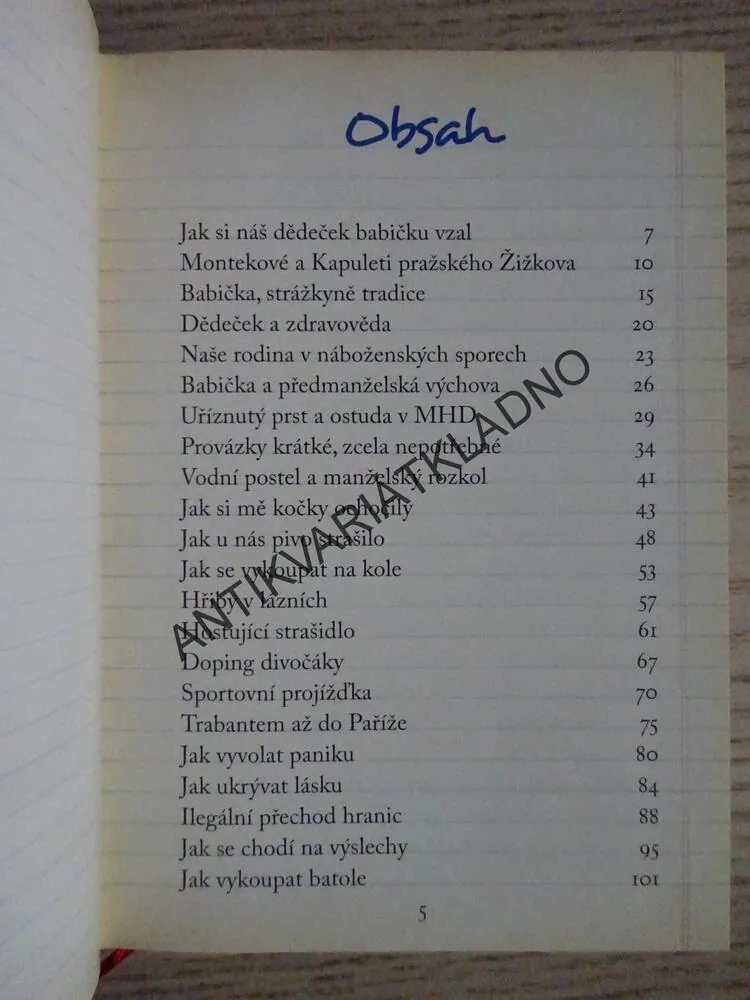 Obsah
Jak si náš dědeček babičku vzal 7
Montekové a Kapuleti pražského Žižkova 10
Babička, strážkyně tradice 15
Dědeček a zdravověda 20
Naše rodina v náboženských sporech 23
Babička a předmanželská výchova 26
Uříznutý prst a ostuda v MHD 29
Provázky krátké, zcela nepotřebné 34
Vodní postel a manželský rozkol 41
Jak si mě kočky ochočily 43
Jak u nás pivo strašilo 48
Jak se vykoupat na kole 53
Hřiby v lázních 57
Hostující strašidlo 61
Doping divočáky 67
Sportovní projížďka 70
Trabantem až do Paříže 75
Jak vyvolat paniku 80
Jak ukrývat lásku 84
Ilegální přechod hranic 88
Jak se chodí na výslechy 95
Jak vykoupat batole 101
5
ANTIKVARIÁTKLADNO